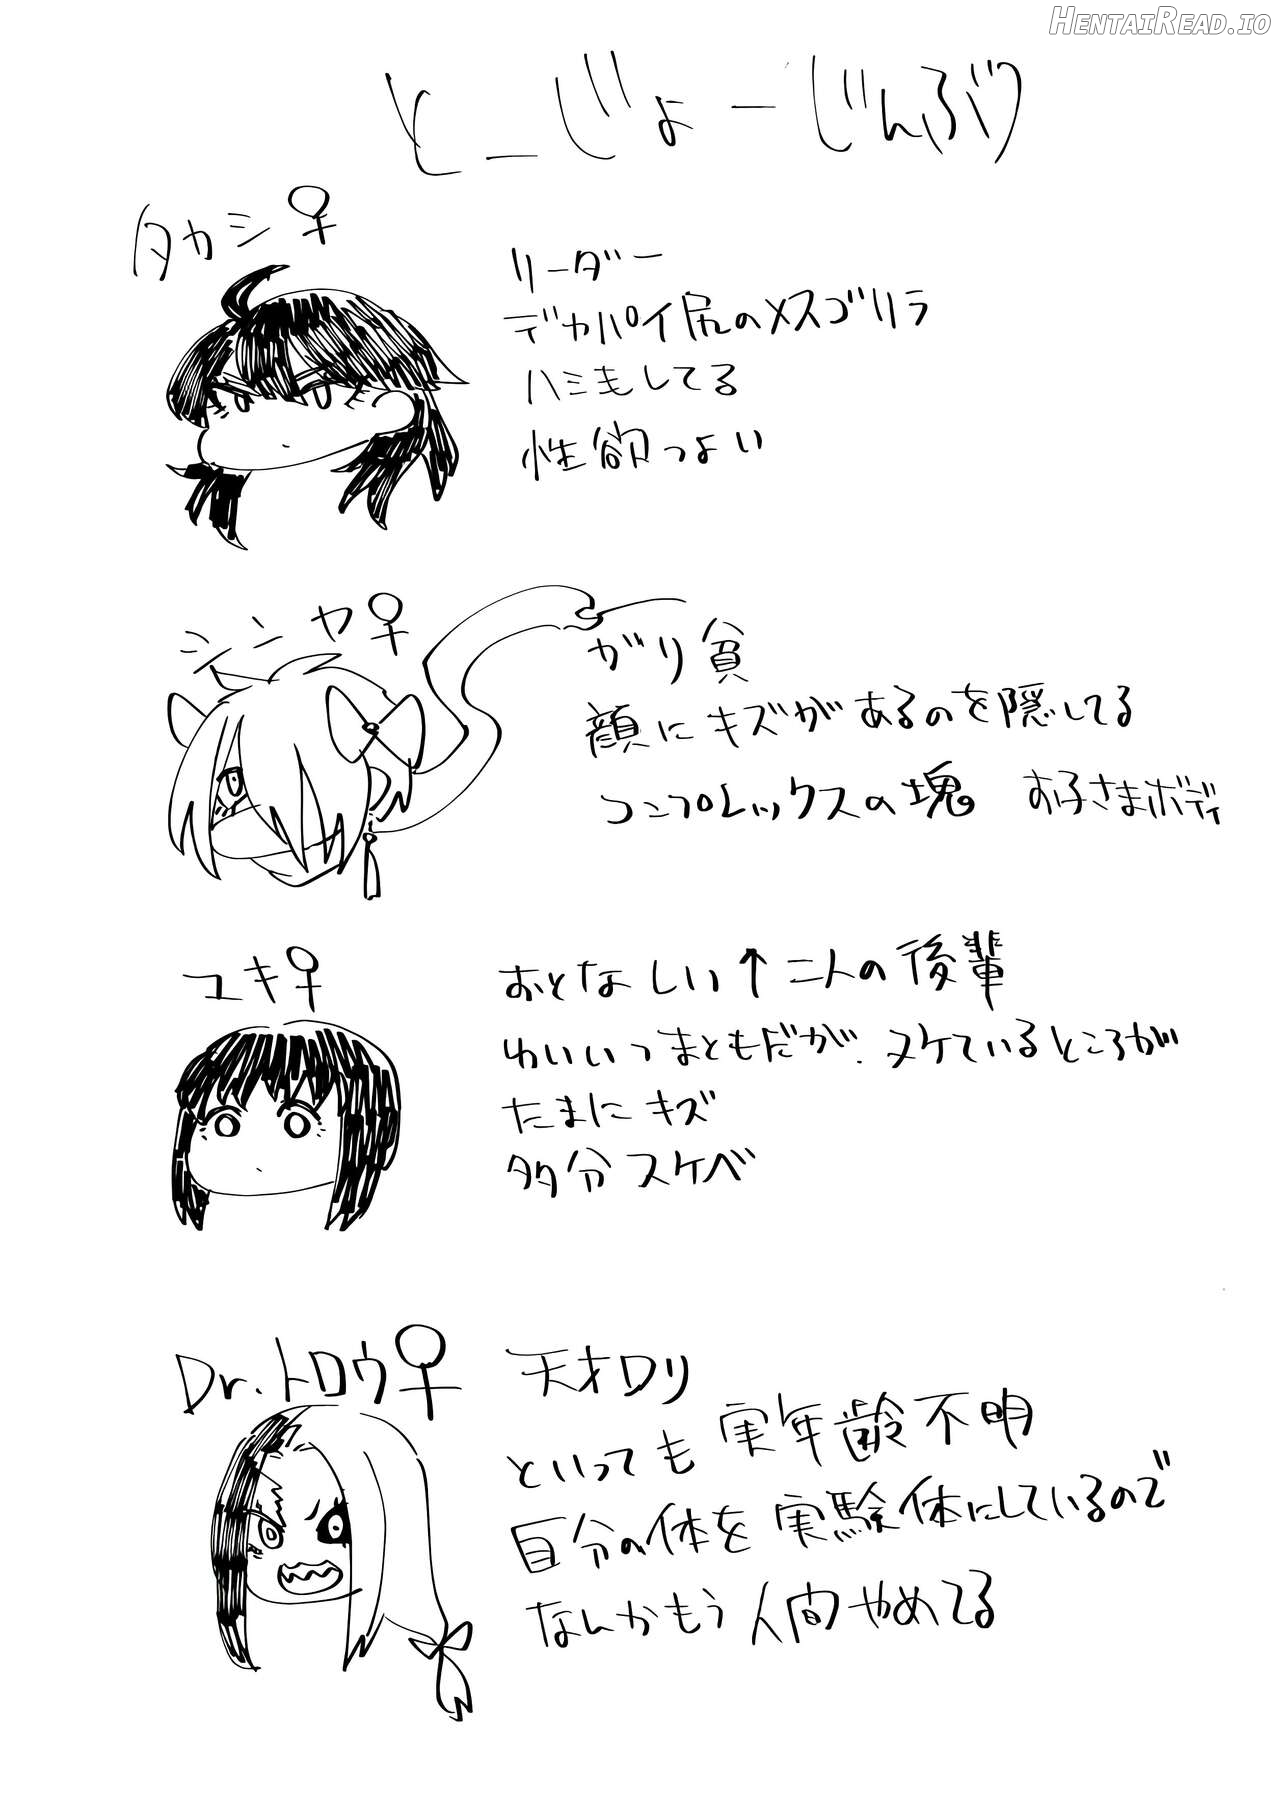 HENTAIREAD.IO
とーじょーじんぶつ
タカシ♀
リーダー
デカパイ尻のメスゴリラ
ハミ毛してる
性欲つよい
シンヤ♀
がり貧
顔にキズがあるのを隠してる
コンプレックスの塊 お子さまボディ
ユキ♀
おとなしい↑二人の後輩
わいいつまともだが、ヌケているところが
たまにキズ
多分スケベ
Dr.トロウ♀
天才ロリ
といっても実年齢不明
自分の体を実験体にしているので
なんかもう人間やめてる